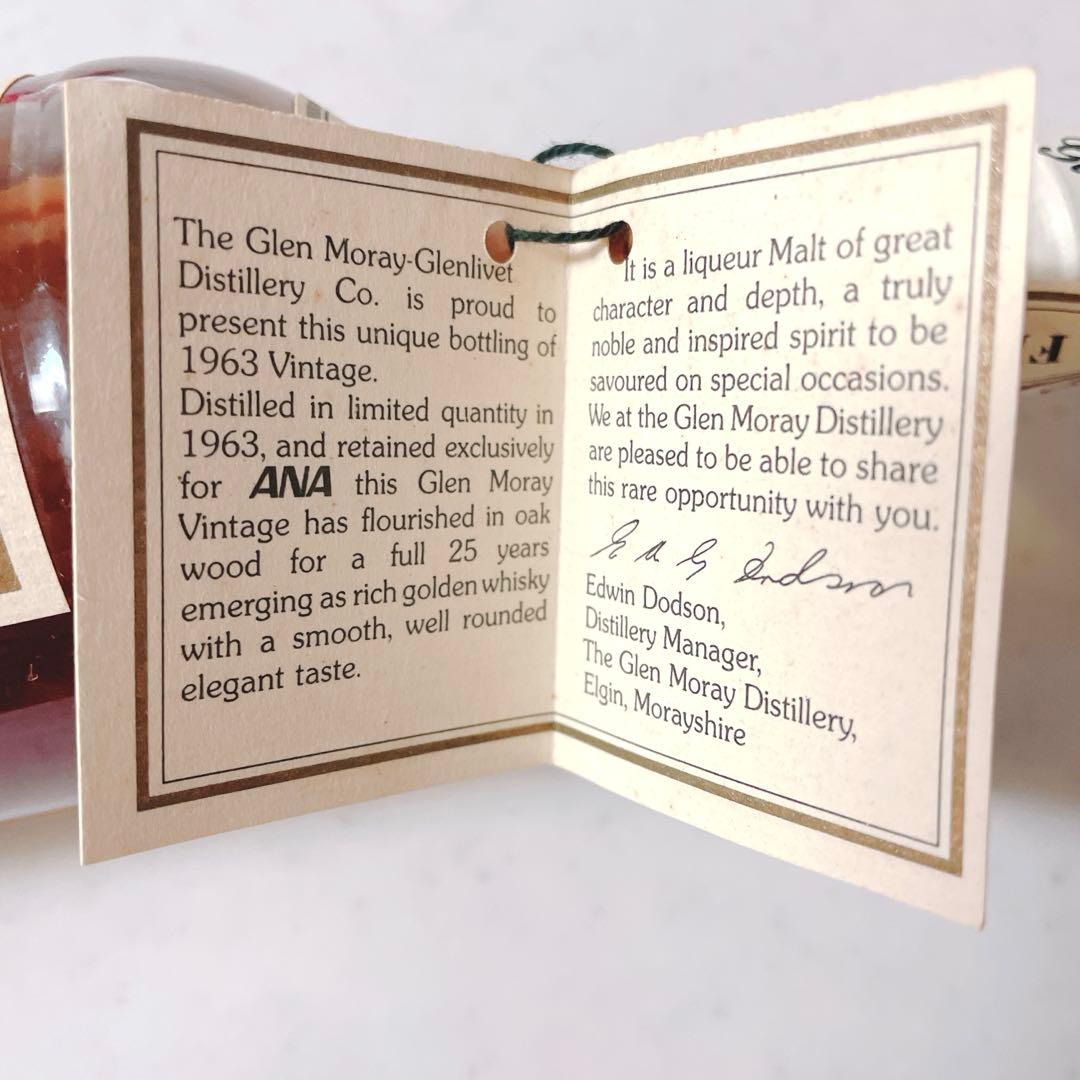 The Glen Moray-Glenlivet
Distillery Co. is proud to
present this unique bottling of
1963 Vintage.
Distilled in limited quantity in
1963, and retained exclusively
for ANA this Glen Moray
Vintage has flourished in oak
wood for a full 25 years
emerging as rich golden whisky
with a smooth, well rounded
elegant taste.
It is a liqueur Malt of great
character and depth, a truly
noble and inspired spirit to be
savoured on special occasions.
We at the Glen Moray Distillery
are pleased to be able to share
this rare opportunity with you.
E A G Dodson
Edwin Dodson,
Distillery Manager,
The Glen Moray Distillery,
Elgin, Morayshire